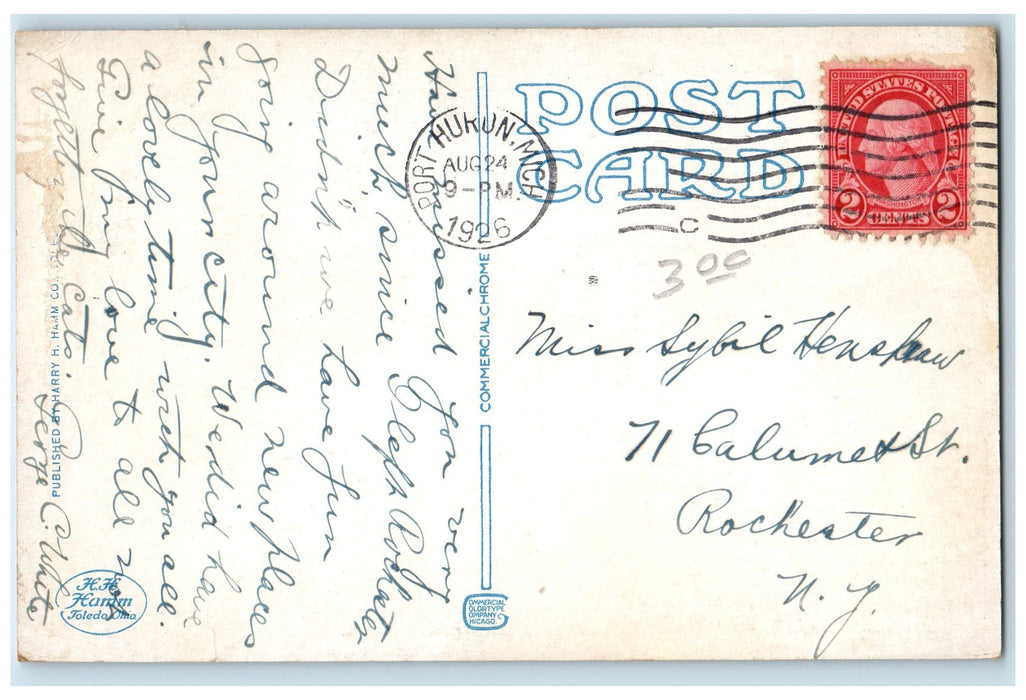 POST
CARD
PORT HURON, MICH
AUG 24
9-PM.
1926
C
UNITED STATES POSTAGE
WASHINGTON
2 CENTS 2
3 00
Miss Sybil Henshaw
71 Calumet St.
Rochester
N. Y.
Have missed you very
much since I left Rochester
Didn't we have fun
going around new places
in your city. We did have
a lovely time with you all.
Give my love to all not
forgetting the cats.
George C. White
COMMERCIALCHROME
PUBLISHED BY HARRY H. HAMM CO., TOLEDO
H.H.
Hamm
Toledo, Ohio
COMMERCIAL
COLORTYPE
COMPANY
CHICAGO.